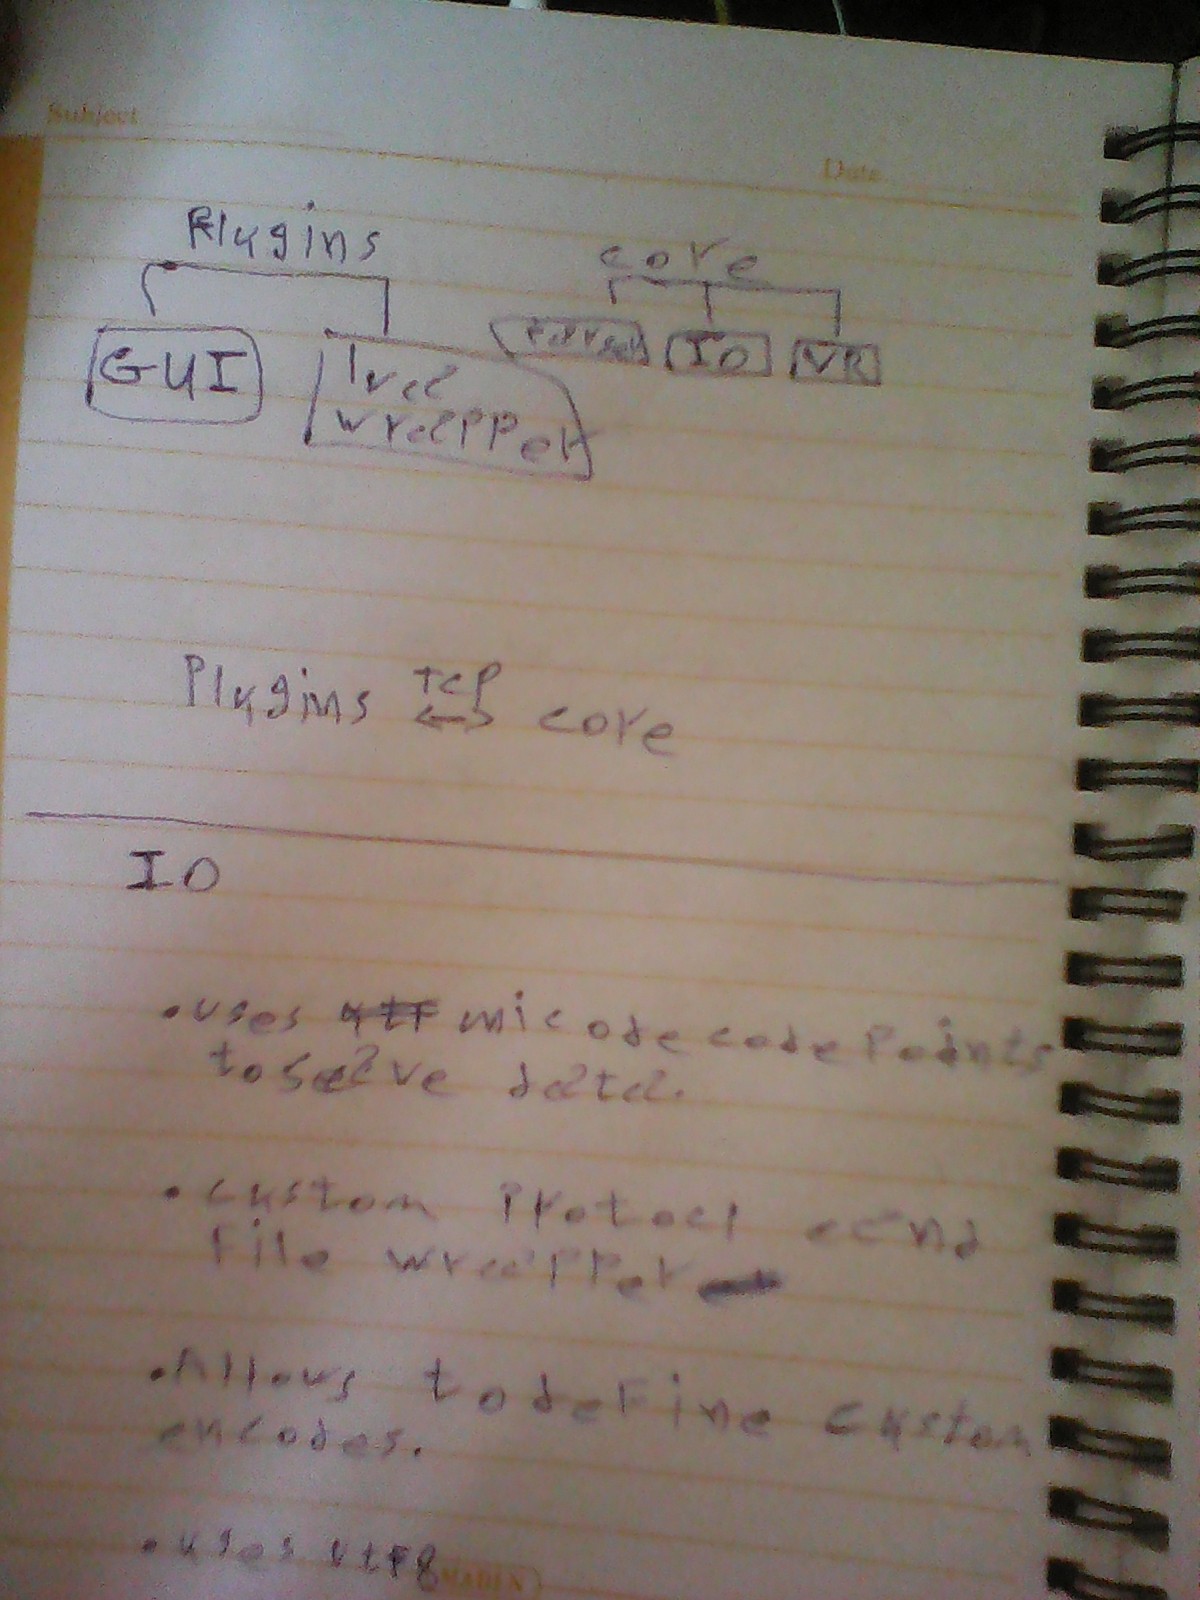 Subject
Date
Plugins
core
GUI
IO
VR
wrapper
Plugins TCP core
IO
• uses utf unicode code Points
to save data.
• custom Protocl and
File wrapper
• Allows to define custom
encodes.
• uses utf8